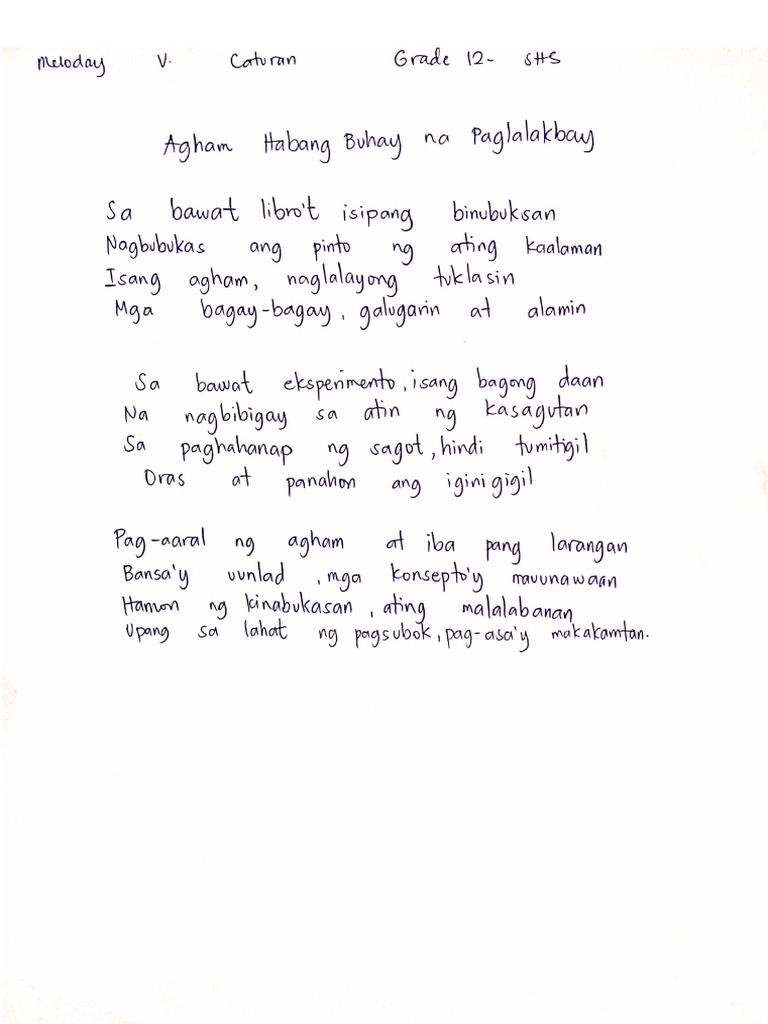 Meloday V. Caturan Grade 12- SHS
Agham Habang Buhay na Paglalakbay
Sa bawat libro't isipang binubuksan
Nagbubukas ang pinto ng ating kaalaman
Isang agham, naglalayong tuklasin
Mga bagay-bagay, galugarin at alamin
Sa bawat eksperimento, isang bagong daan
Na nagbibigay sa atin ng kasagutan
Sa paghahanap ng sagot, hindi tumitigil
Oras at panahon ang iginigigil
Pag-aaral ng agham at iba pang larangan
Bansa'y uunlad, mga konsepto'y mauunawaan
Hamon ng kinabukasan, ating malalabanan
Upang sa lahat ng pagsubok, pag-asa'y makakamtan.